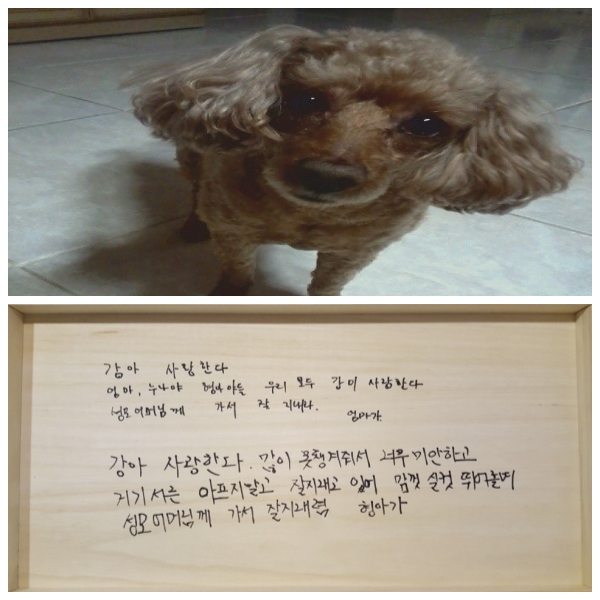 강아 사랑한다
엄마, 누나야 형아야들 우리 모두 강이 사랑한다
성모어머님께 가서 잘 지내라.
엄마가
강아 사랑한다. 많이 못챙겨줘서 너무 미안하고
거기서는 아프지말고 잘지내고 있어 맘껏 실컷 뛰어놀며
성모어머님께 가서 잘지내렴 형아가